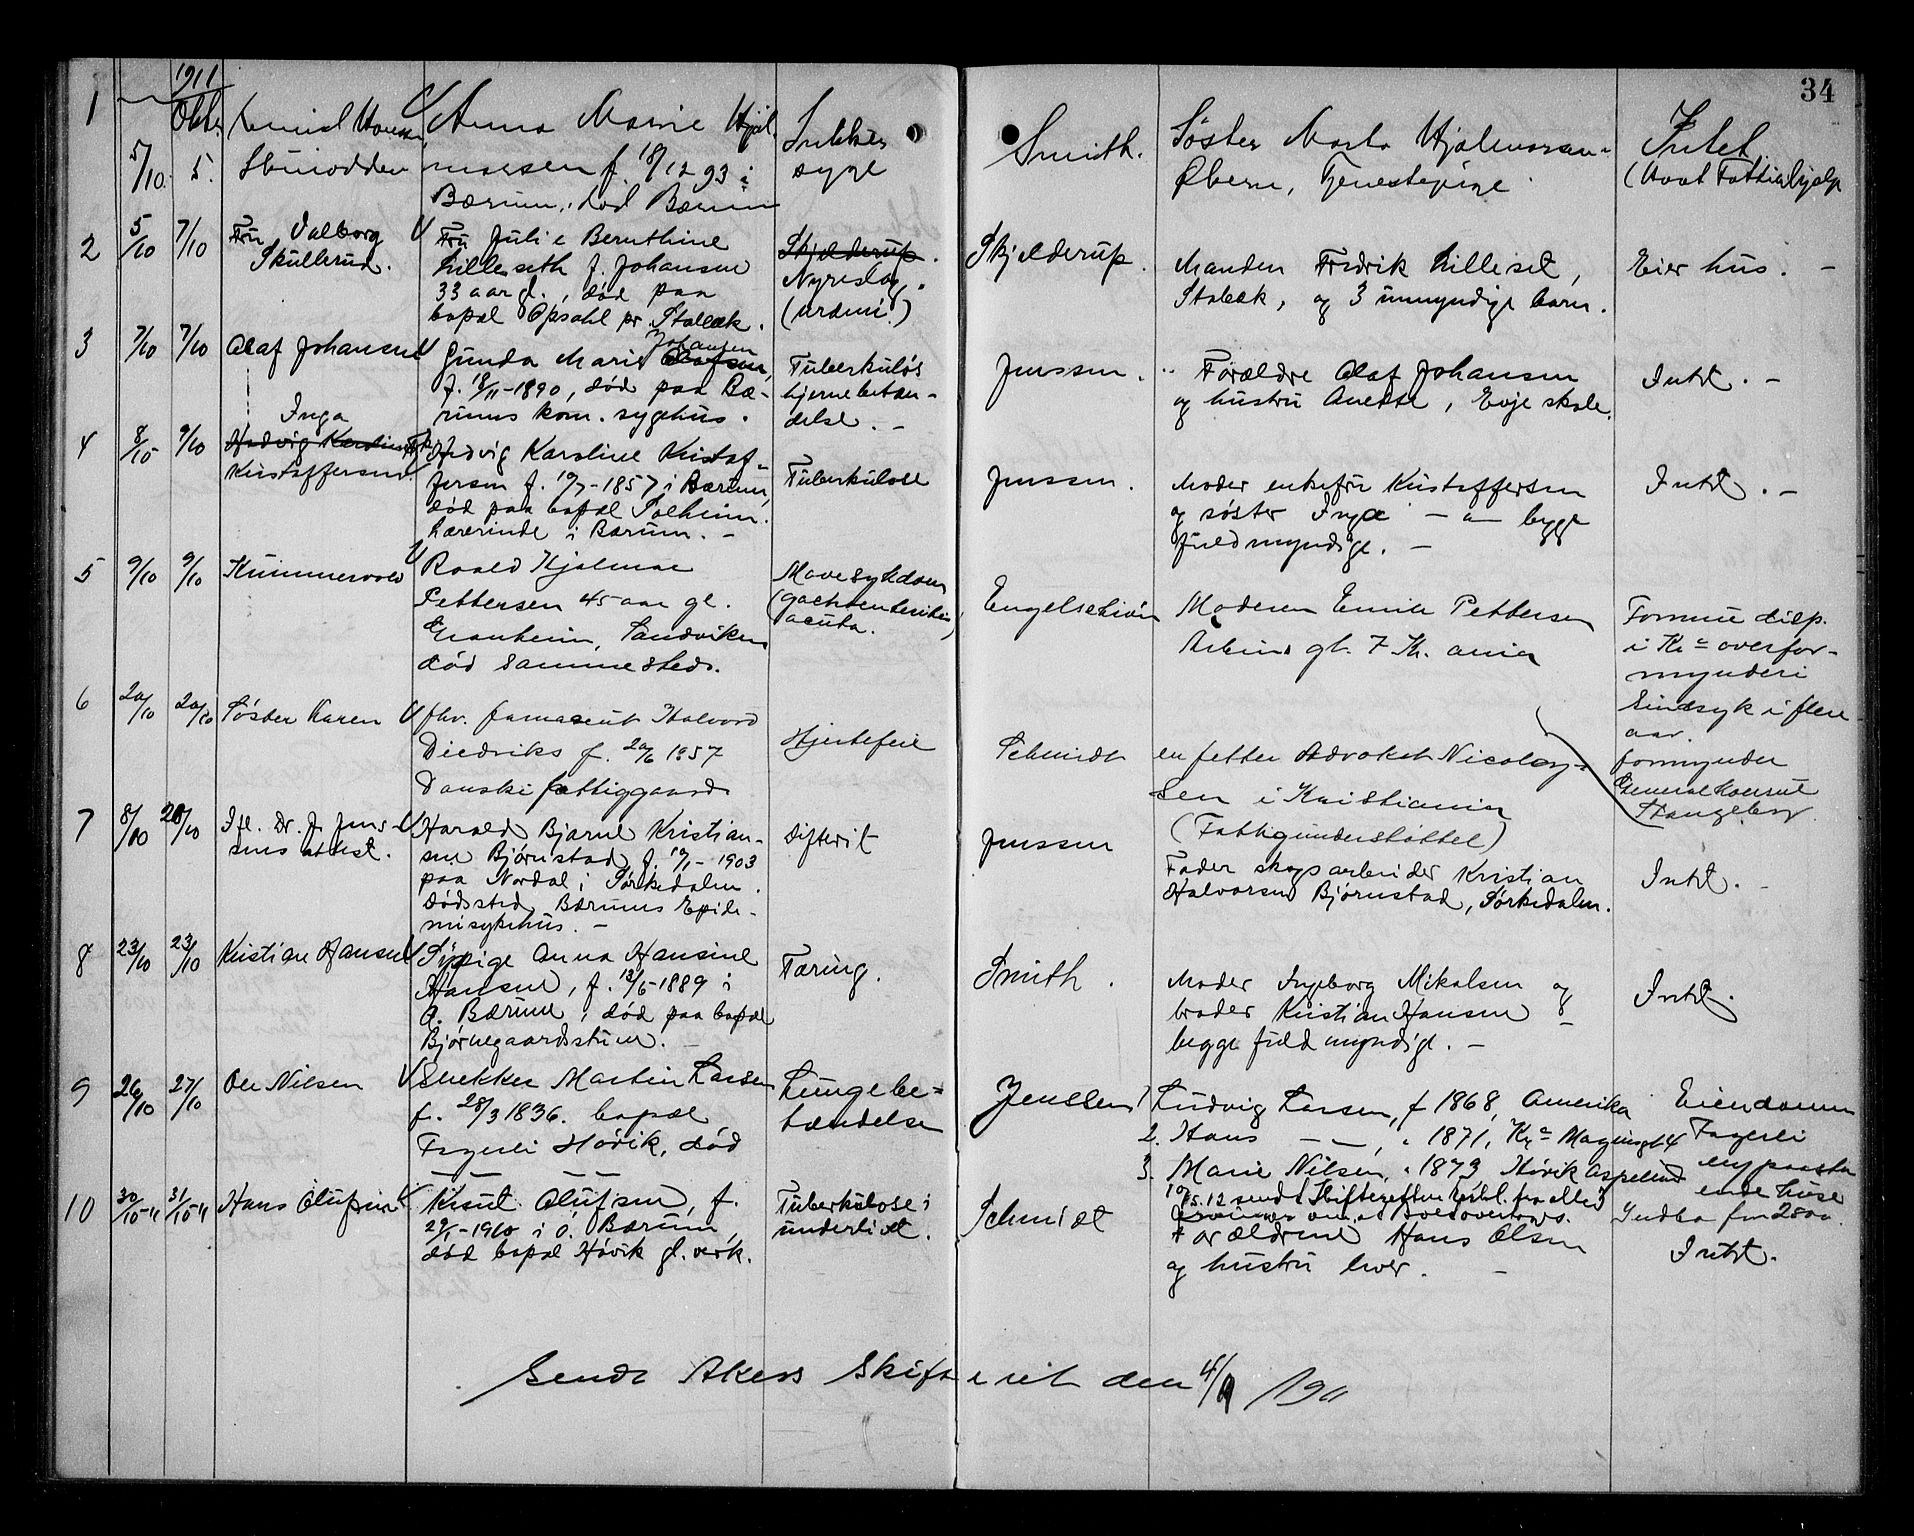 34
1911
1
5/10
Oktbr
5.
Stuvodden
Anna Marie Hjal-
marsen f. 18/12 93 i
Bærum, død Bærum
Sukker
syge
Smith.
Søster Marta Hjalmarsen
Øvern, Tjenestepige
Intet
(Havt Fattighjelp
2
5/10
7/10
Fru Valborg
Skullerud.
Fru Julie Bernthine
Lilleseth f. Johansen
33 aar gl., død paa
bopæl Opsahl pr. Stabæk.
Skjelderup.
Nyreslag.
(uræmi.)
Skjelderup.
Manden Fredrik Lilleset,
Stabæk, og 3 umyndige barn.
Eier hus. —
3
7/10
7/10
Olaf Johansen
Gunda Marie Olafsen, Johansen
f. 18/11-1890, død paa Bæ-
rums kom. sygehus.
Tuberkuløs
hjernebetæn-
delse. —
Jenssen.
Forældre Olaf Johansen
og hustru Anette, Evje skole.
Intet. —
4
8/10
9/10
Inga
Hedvig Karoline
Kristoffersen
Frk. Hedvig Karoline Kristof-
fersen f. 10/7-1857 i Bærum,
død paa bopæl Solheim.
Lærerinde i Bærum. —
Tuberkulose
Jenssen.
Moder enkefru Kristoffersen
og søster Inga — " — begge
fuldmyndige. —
Intet. —
5
9/10
9/10
Kummervold
Roald Hjalmar
Pettersen 45 aar gl.
Granheim, Sandviken
død sammesteds.
Mavesykdom
(gastroenteritis
acuta.)
Engelschiøn
Moderen Emilie Pettersen
gt. 7 Kr.ania
Formue disp.
i Kr.a overfor-
mynderi
Sindsyk i flere
aar.
formynder
Generalkonsul
Stangeberg
6
20/10
20/10
Søster Karen
fhv. farmaceut Halvord
Diedriks f. 20/6 1857
Danski fattiggaard
Hjertefeil
Schmidt
en fetter Advokat Nicolay-
sen i Kristiania
(Fattigunderstøttet)
7
8/10
20/10
Ifl. Dr. J. Jens-
sens attest.
Harald Bjarne Kristian-
sen Bjørnstad f. 10/1-1903
paa Nordal i Sørkedalen.
Dødssted Bærums Epide-
misykehus. —
Difterit
Jenssen
Fader skogsarbeider Kristian
Halvorsen Bjørnstad, Sørkedalen.
Intet. —
8
23/10
23/10
Kristian Hansen
Sypige Anna Hansine
Hansen, f. 13/6-1889 i
Ø. Bærum, død paa bopæl
Bjørnegaardsstuen. —
Tæring.
Smith.
Moder Ingeborg Mikalsen og
broder Kristian Hansen
begge fuldmyndige. —
Intet.
9
26/10
27/10
Ole Nilsen
Snekker Martin Larsen
f. 28/3 1836. bopæl
Fagerli Høvik, død
Lungebe-
tændelse
Jenssen
1 Ludvig Larsen, f 1868, Amerika
2. Hans — " — " 1871, Kr.a
3. Marie Nilsen, " 1873 Høvik Aspelund
Eiendommen
Fagerli
med paasta
ende huse
Indbo for 2800.
10
30/10-11
31/10-11
Hans Olufsen
Knut Olufsen, f.
29/1-1910 i Ø. Bærum,
død bopæl Høvik gl. verk.
Tuberkulose i
underlivet.
Schmidt
Forældrene Hans Olsen
og hustru lever. —
Intet.
Sendt Akers Skifteret den 4/11 1911